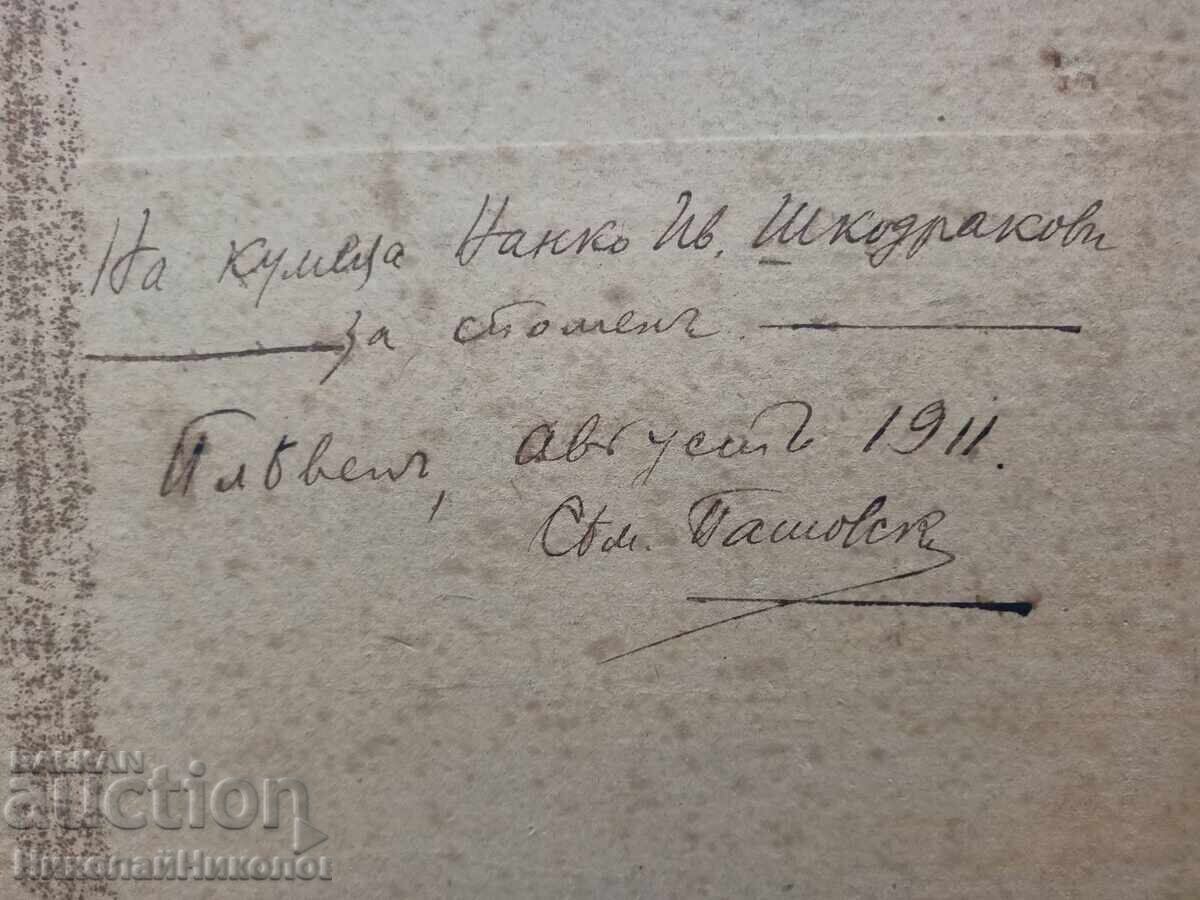 На кумеца Нанко Ив. Шкодракови
за споменъ.
Плѣвенъ, августъ 1911.
Сѣм. Пашовск
BALKAN
auction
НиколайНиколов